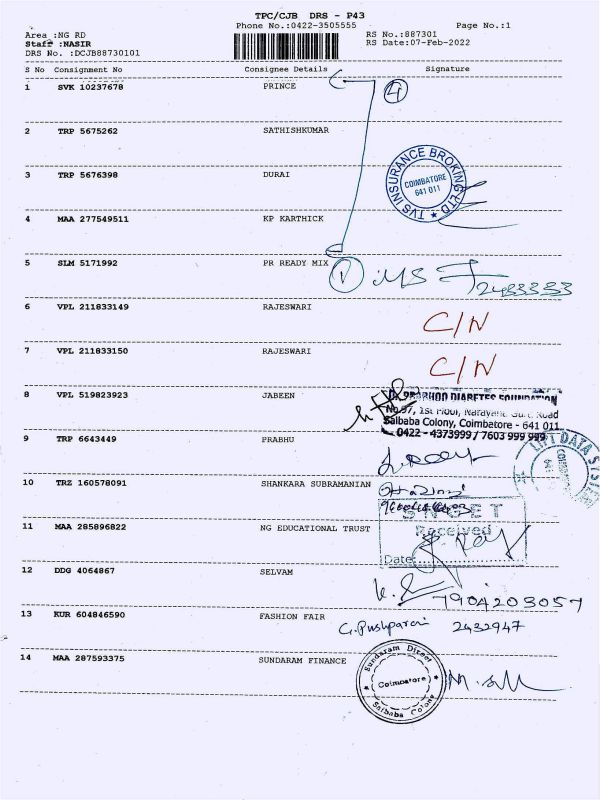 TPC/CJB DRS - P43
Phone No.:0422-3505555 Page No.:1
Area :NG RD RS No.:887301
Staff :NASIR RS Date:07-Feb-2022
DRS No. :DCJB88730101
S No Consignment No Consignee Details Signature
1 SVK 10237678 PRINCE 4
2 TRP 5675262 SATHISHKUMAR
3 TRP 5676398 DURAI
TVS INSURANCE BROKING LTD
COIMBATORE
641 011
4 MAA 277549511 KP KARTHICK
5 SLM 5171992 PR READY MIX 1
6 VPL 211833149 RAJESWARI C/N
7 VPL 211833150 RAJESWARI C/N
8 VPL 519823923 JABEEN
DIABETES FOUNDATION
No.97, 1st Floor, Narayana Guru Road
Saibaba Colony, Coimbatore - 641 011
0422 - 4373999 / 7603 999 999
9 TRP 6643449 PRABHU
DATA SYSTEM
10 TRZ 160578091 SHANKARA SUBRAMANIAN
Received
11 MAA 285896822 NG EDUCATIONAL TRUST
Date:
12 DDG 4064867 SELVAM
7904203057
13 KUR 604846590 FASHION FAIR
2432947
14 MAA 287593375 SUNDARAM FINANCE
Sundaram Direct
Coimbatore
Saibaba Colony